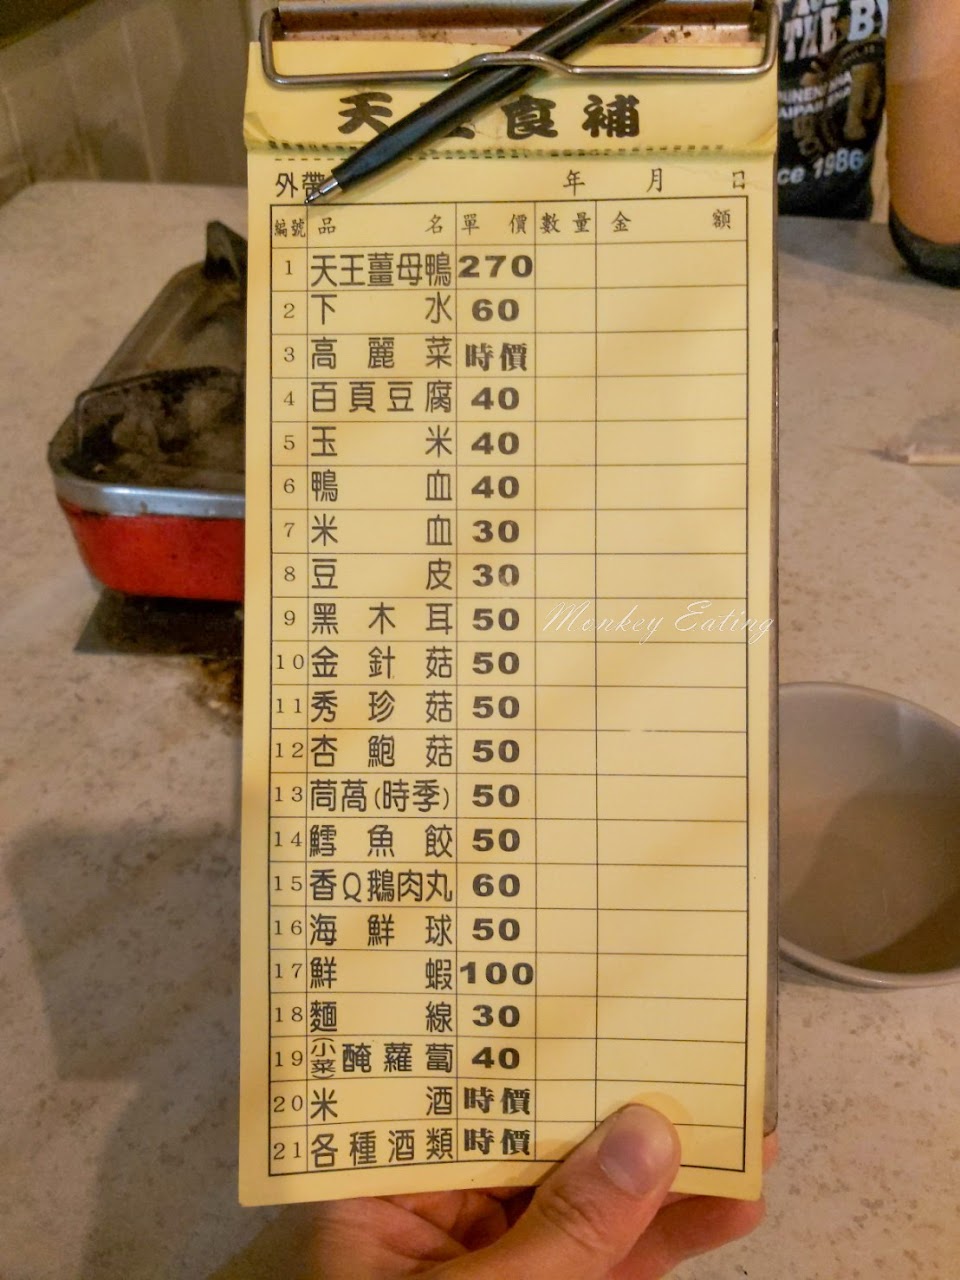 THE BY
ce 1986
天 食補
外帶
年 月 日
編號 品名 單價 數量 金額
1 天王薑母鴨 270
2 下水 60
3 高麗菜 時價
4 百頁豆腐 40
5 玉米 40
6 鴨血 40
7 米血 30
8 豆皮 30
9 黑木耳 50
Monkey Eating
10 金針菇 50
11 秀珍菇 50
12 杏鮑菇 50
13 茼萵(時季) 50
14 鱈魚餃 50
15 香Q鵝肉丸 60
16 海鮮球 50
17 鮮蝦 100
18 麵線 30
19 (小菜)醃蘿蔔 40
20 米酒 時價
21 各種酒類 時價